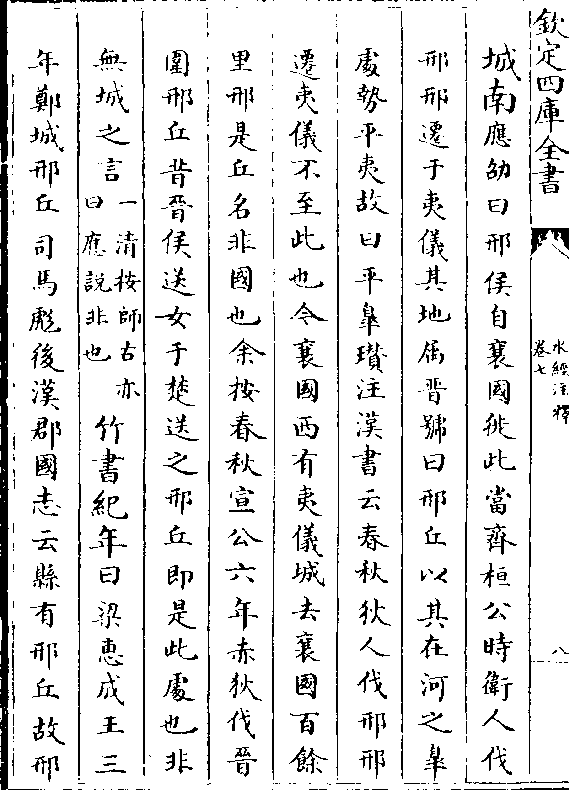 欽定四庫全書
水經注釋
卷七
八
城南應劭曰邢侯自襄國徙此當齊桓公時衛人伐
邢邢遷于夷儀其地屬晉號曰邢丘以其在河之臯
處勢平夷故曰平臯瓉注漢書云春秋狄人伐邢邢
遷夷儀不至此也今襄國西有夷儀城去襄國百餘
里邢是丘名非國也余按春秋宣公六年赤狄伐晉
圍邢丘昔晉侯送女于楚送之邢丘即是此處也非
無城之言一清按師古亦曰應説非也竹書紀年曰梁惠成王三
年鄭城邢丘司馬彪後漢郡國志云縣有邢丘故邢